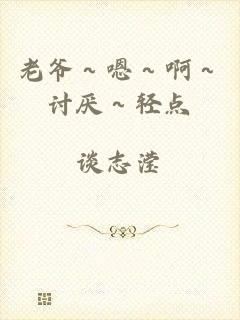 老爷～嗯～啊～
讨厌～轻点
谈志滢